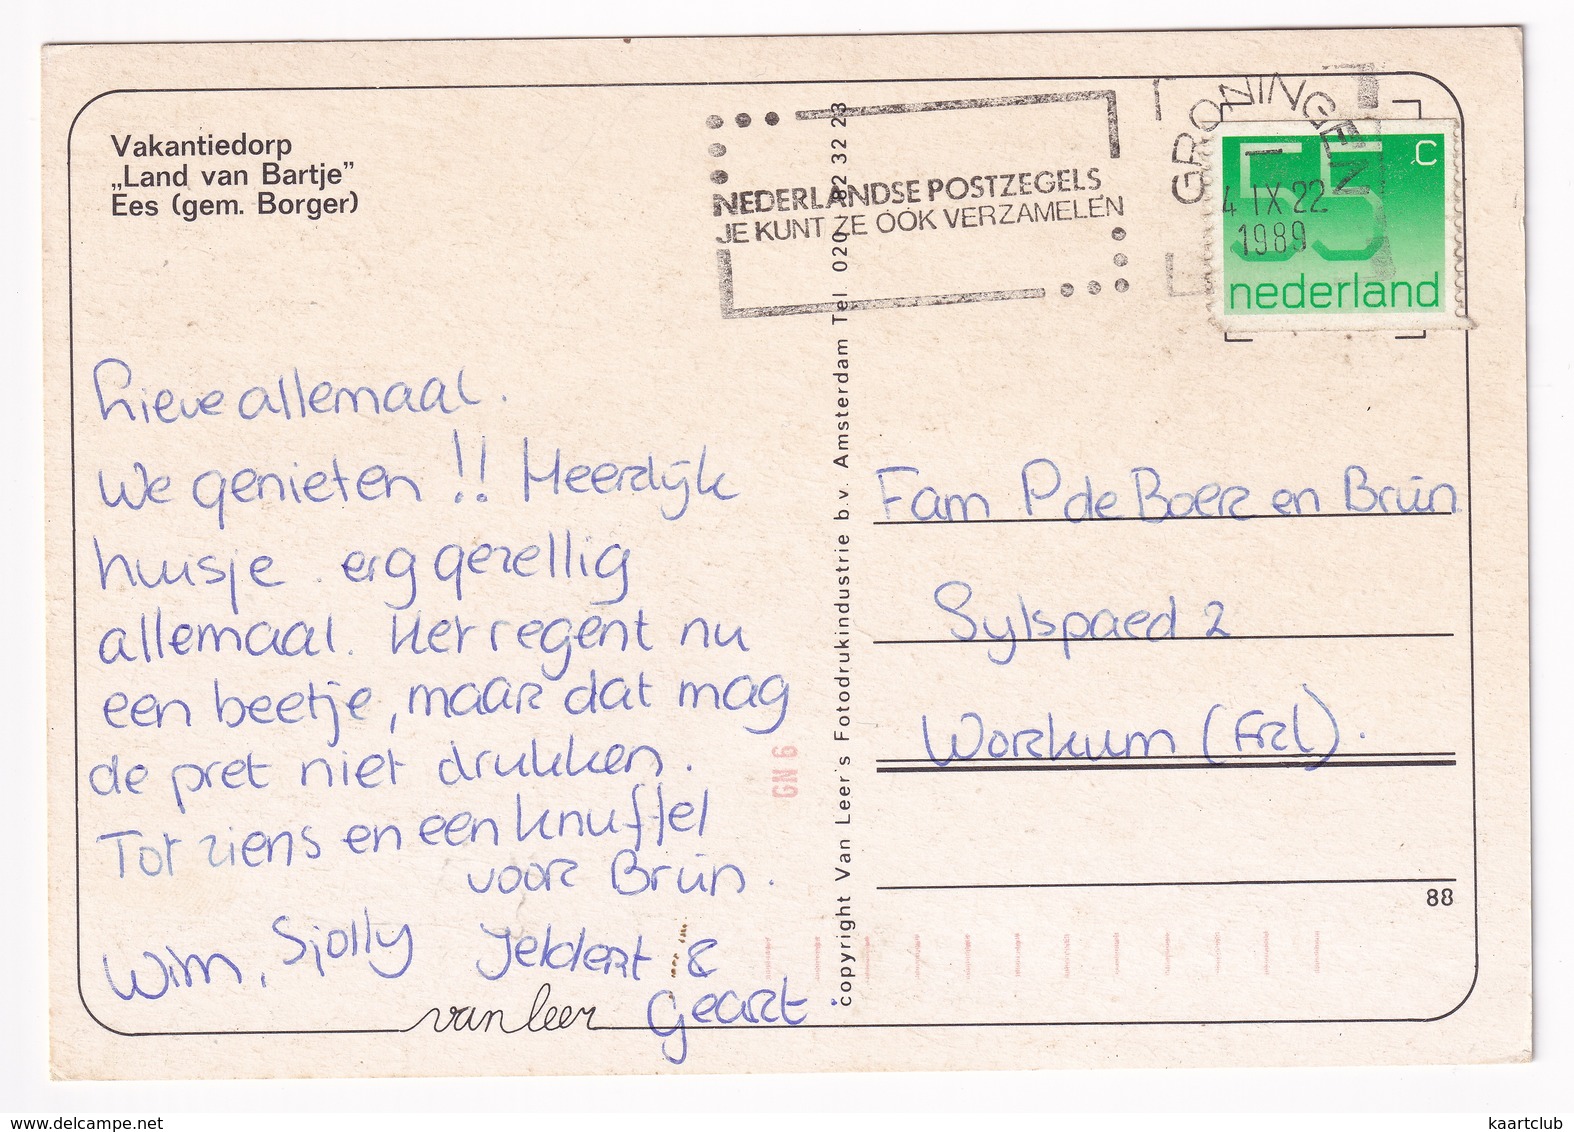 Vakantiedorp
„Land van Bartje”
Ees (gem. Borger)
NEDERLANDSE POSTZEGELS
JE KUNT ZE OOK VERZAMELEN
GRONINGEN
4 IX 22
1989
55 c
nederland
Lieve allemaal.
We genieten !! Heerlijk
huisje. erg gezellig
allemaal. Het regent nu
een beetje, maar dat mag
de pret niet drukken.
Tot ziens en een knuffel
voor Brúin.
Wim, Sjolly Jeldert &
Geart.
van leer
copyright Van Leer's Fotodrukindustrie b.v. Amsterdam Tel. 020 - 82 32 28
GN 6
Fam P de Boer en Brúin
Sylspaed 2
Workum (Frl).
88
www.delcampe.net
kaartclub